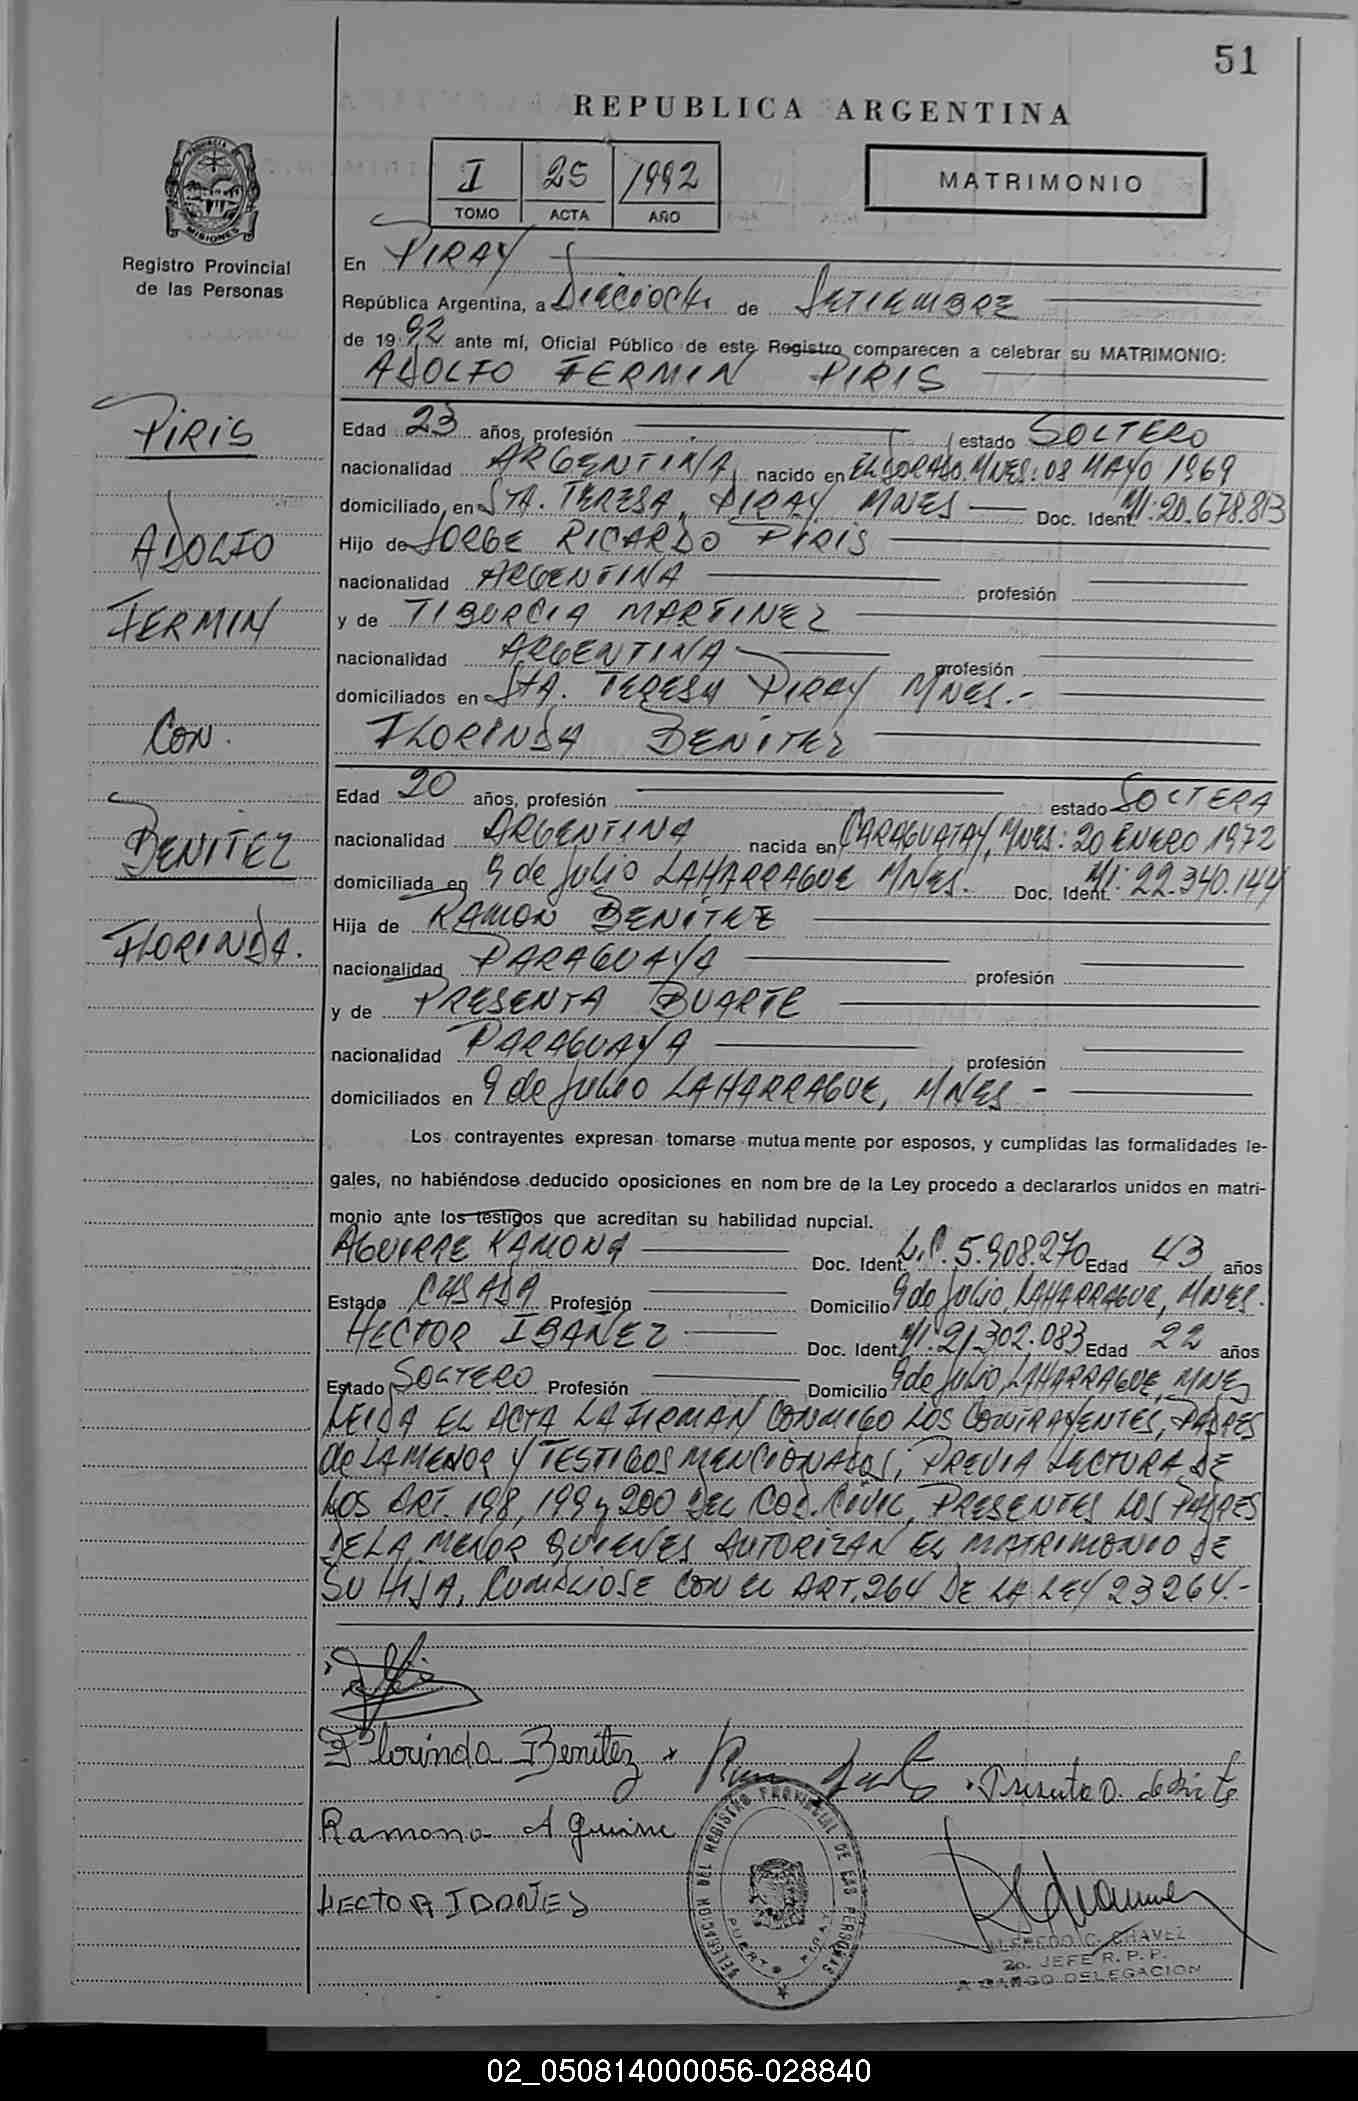 51
REPUBLICA ARGENTINA
I 25 1992
TOMO ACTA AÑO
MATRIMONIO
PROVINCIA DE MISIONES
Registro Provincial
de las Personas
En PIRAY
República Argentina, a DIECIOCHO de SETIEMBRE
de 1992 ante mí, Oficial Público de este Registro comparecen a celebrar su MATRIMONIO:
ADOLFO FERMIN PIRIS
PIRIS
ADOLFO
FERMIN
CON.
BENITEZ
FLORINDA.
Edad 23 años, profesión estado SOLTERO
nacionalidad ARGENTINA, nacido en ELDORADO. MNES: 08 MAYO 1969
domiciliado en STA. TERESA, PIRAY MNES Doc. Ident. M.I: 20.678.813
Hijo de JORGE RICARDO PIRIS
nacionalidad ARGENTINA profesión
y de TIBURCIA MARTINEZ
nacionalidad ARGENTINA profesión
domiciliados en STA. TERESA PIRAY MNES.-
FLORINDA BENITEZ
Edad 20 años, profesión estado SOLTERA
nacionalidad ARGENTINA nacida en CARAGUATAY, MNES: 20 ENERO 1972
domiciliada en 9 de Julio LAHARRAGUE MNES. Doc. Ident. M.I: 22.340.144
Hija de RAMON BENITEZ
nacionalidad PARAGUAYA profesión
y de PRESENTA DUARTE
nacionalidad PARAGUAYA profesión
domiciliados en 9 de Julio LAHARRAGUE, MNES -
Los contrayentes expresan tomarse mutua mente por esposos, y cumplidas las formalidades le-
gales, no habiéndose deducido oposiciones en nom bre de la Ley procedo a declararlos unidos en matri-
monio ante los testigos que acreditan su habilidad nupcial.
AGUIRRE RAMONA Doc. Ident. L.C. 5.908.270 Edad 43 años
Estado CASADA Profesión Domicilio 9 de Julio, LAHARRAGUE, MNES.
HECTOR IBAÑEZ Doc. Ident. M.I: 21.302.083 Edad 22 años
Estado SOLTERO Profesión Domicilio 9 de Julio, LAHARRAGUE, MNES
LEIDA EL ACTA LA FIRMAN CONMIGO LOS CONTRAYENTES, PADRES
de LA MENOR Y TESTIGOS MENCIONADOS, PREVIA LECTURA DE
LOS ART. 198, 199 y 200 DEL COD. CIVIL, PRESENTES LOS PADRES
DE LA MENOR QUIENES AUTORIZAN EL MATRIMONIO DE
SU HIJA, CUMPLIOSE CON EL ART. 264 DE LA LEY 23264.-
Florinda Benitez
Ramona Aguirre
HECTOR IBAÑES
DELEGACION DEL REGISTRO PROVINCIAL DE LAS PERSONAS
PUERTO PIRAY
ALFREDO C. CHAVEZ
2o. JEFE R. P. P.
A CARGO DELEGACION
02_050814000056-028840